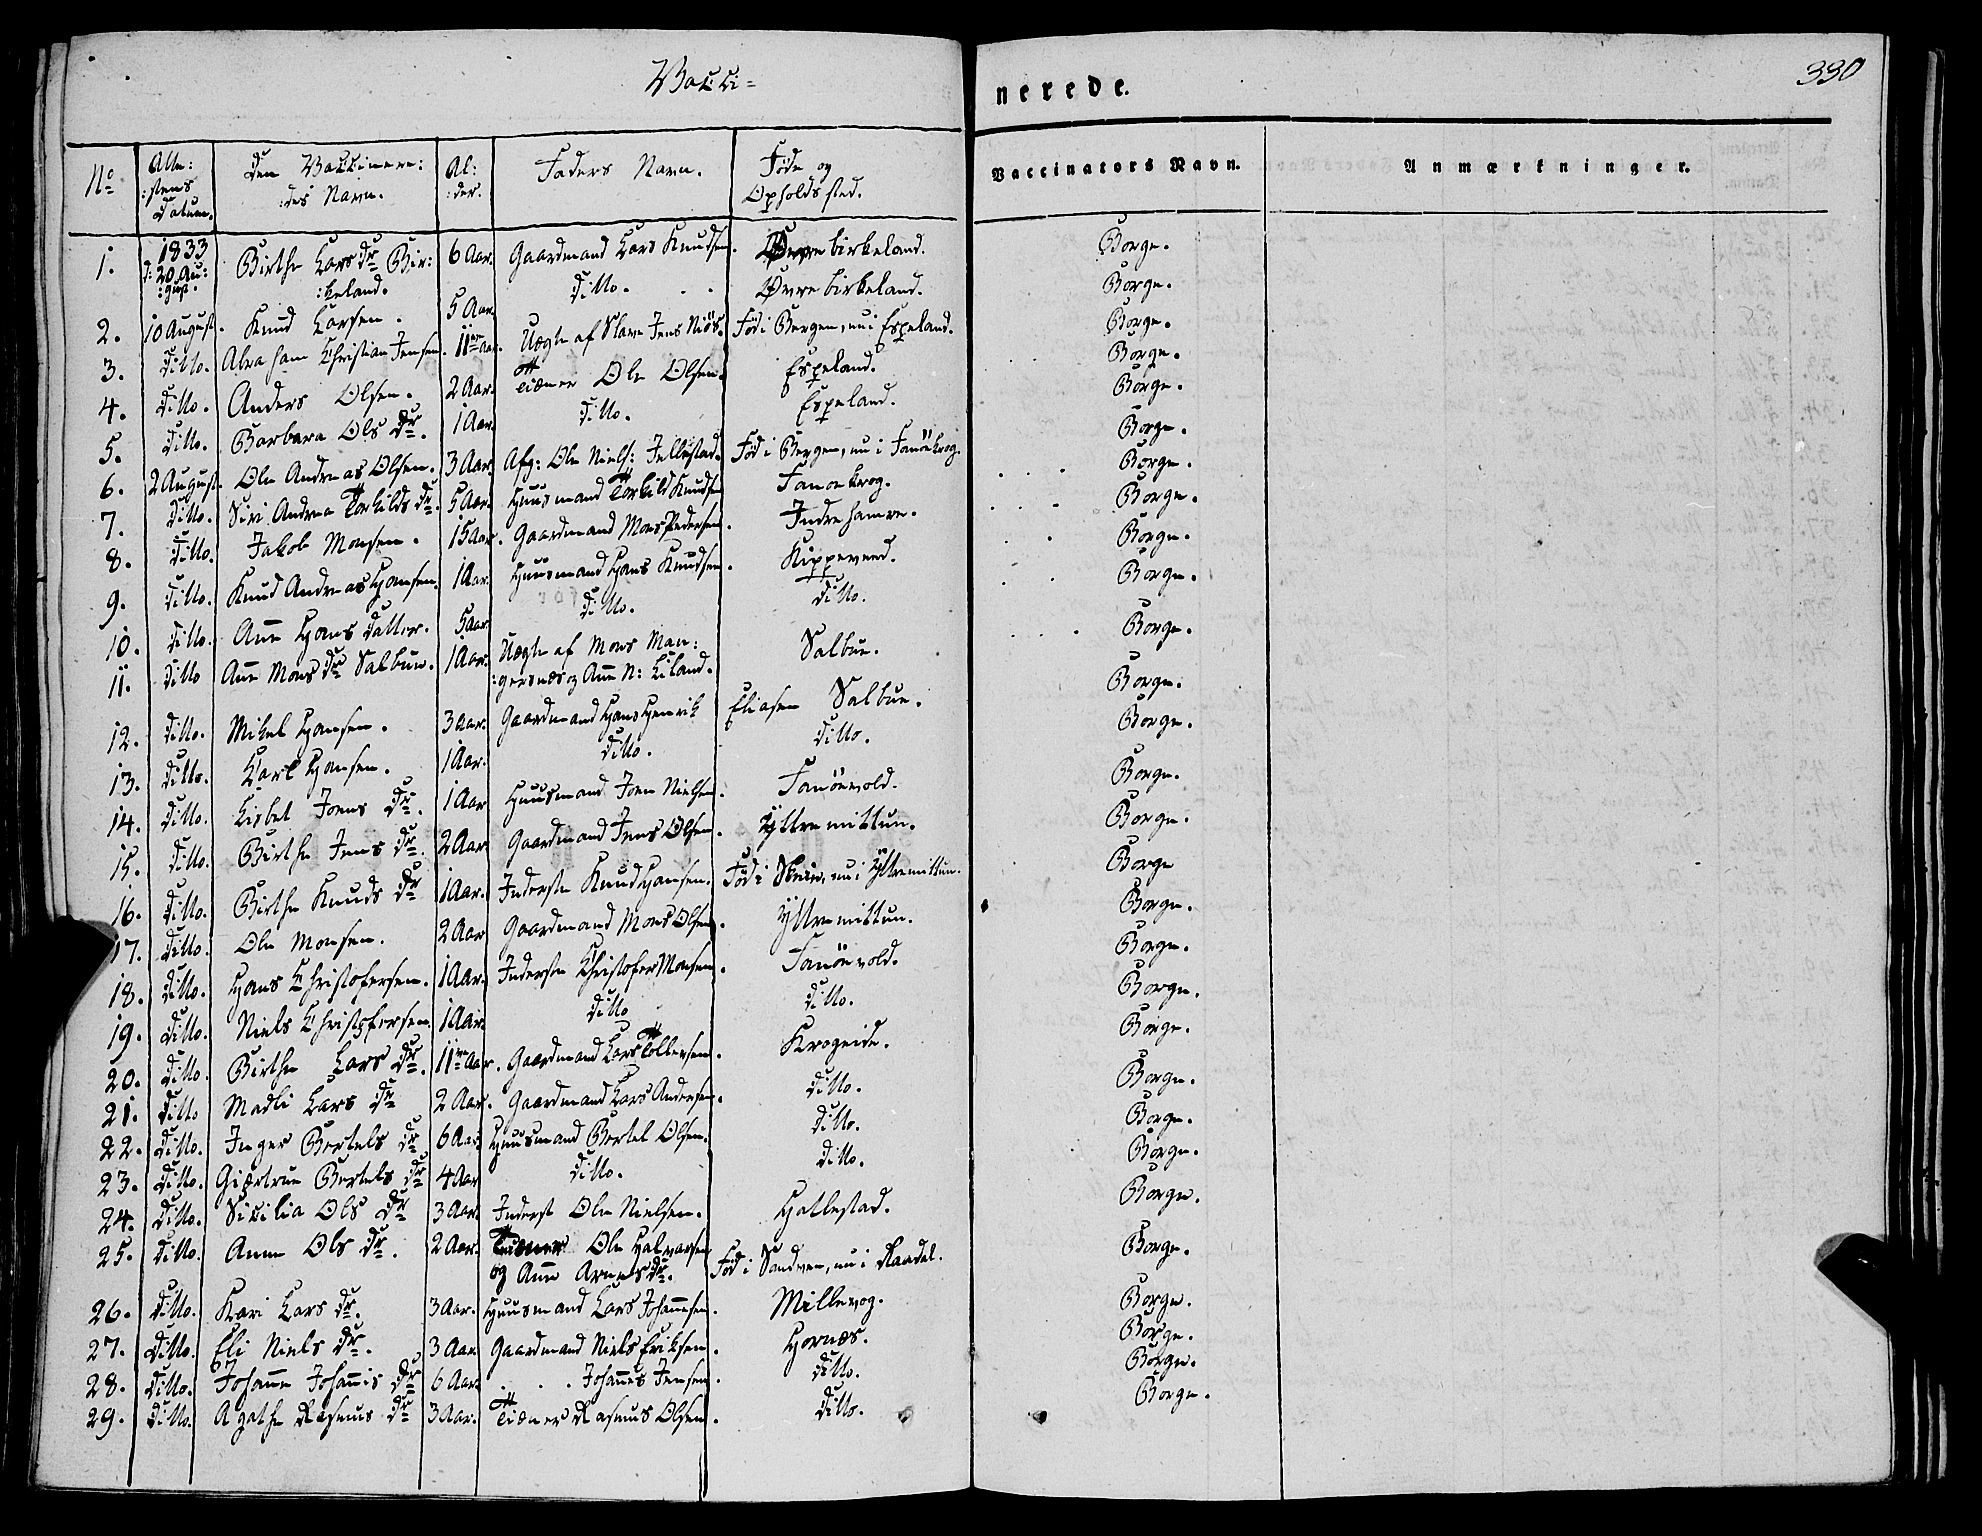 Vacci=
nerede.
330
No
Atte:
:stens
Datum.
Den Vaccinere:
:des Navn.
Al:
:der.
Faders Navn.
Føde og
Opholdssted.
Vaccinators Navn.
Anmærkninger.
1. 1833 d: 20 Au: :gust. Birthe Lars Dr Bir: :keland. 6 Aar. Gaardmand Lars Knudsen. Øvrebirkeland. Borge.
2. 10 August. Knud Larsen. 5 Aar. Ditto. Øvrebirkeland. Borge.
3. Ditto. Abraham Christian Jensen. 11 Aar. Uægte af Slave Jens Fød i Bergen, nu i Espeland. Borge.
4. Ditto. Anders Olsen. 2 Aar. Tiæner Ole Olsen. Espeland. Borge.
5. Ditto. Barbara Ols Dr. 1 Aar. Ditto. Espeland. Borge.
6. 2 August. Ole Andreas Olsen. 3 Aar. Afg: Ole Niels: Jellestad. Fød i Bergen, nu i Fanøekrog. Borge.
7. Ditto. Siri Andrea Torkilds Dr. 5 Aar. Huusmand Torkild Knudsen Fanoekrog. Borge.
8. Ditto. Jakob Monsen. 15 Aar. Gaardmand Mons Pedersen. Indrehamre. Borge.
9. Ditto. Knud Andreas Hansen. 1 Aar. Huusmand Hans Knudsen. Kippeveed. Borge.
10. Ditto. Ane Hans Datter. 5 Aar Ditto. Ditto. Borge.
11. Ditto Ane Mons Dr Salbue. 1 Aar. Uægte af Mons Man: :gersnæs og Ane N: Liland. Salbue. Borge.
12. Ditto. Mikel Hansen. 3 Aar. Gaardmand Hans Henrik Eliasen Salbue. Borge.
13. Ditto. Carl Hansen. 1 Aar. Ditto. Ditto. Borge.
14. Ditto. Lisbet Joens Dr. 1 Aar Huusmand Joen Nielsen. Fanöevold. Borge.
15. Ditto. Birthe Jens Dr. 2 Aar Gaardmand Jens Olsen. Yttremittun. Borge.
16. Ditto. Birthe Knuds Dr 1 Aar. Inderste Knud Hansen. Fød i Skeie, nu i Yttremittun. Borge
17. Ditto. Ole Monsen. 2 Aar Gaardmand Mons Olsen. Yttremittun. Borge.
18. Ditto. Hans Christofersen. 1 Aar. Inderste Christofer Monsen. Fanöevold. Borge.
19. Ditto. Niels Christofersen. 1 Aar. Ditto Ditto. Borge.
20. Ditto. Birthe Lars Dr. 11 Aar. Gaardmand Lars Tollevsen. Krogeide. Borge.
21. Ditto Madli Lars Dr 2 Aar. Gaardmand Lars Andersen. Ditto. Borge.
22. Ditto. Inger Bertels Dr 6 Aar. Huusmand Bertel Olsen. Ditto. Borge.
23. Ditto. Giærtrue Bertels Dr 4 Aar Ditto. Ditto. Borge.
24. Ditto. Sicilia Ols Dr 3 Aar. Inderst Ole Nielsen. Hatlestad. Borge.
25. Ditto. Anne Ols Dr. 2 Aar. Tiæner Ole Halvorsen og Ane Arnes Dr. Fød i Sandven, nu i Raadal. Borge.
26. Ditto. Kari Lars Dr. 3 Aar. Huusmand Lars Johannesen. Millevog. Borge.
27. Ditto. Eli Niels Dr. 3 Aar Gaardmand Niels Eriksen. Hornæs. Borge.
28. Ditto. Johanne Johannis Dr 6 Aar. . . . Johannes Jensen. Ditto. Borge.
29. Ditto. Agathe Rasmus Dr 3 Aar. Tiæner Rasmus Olsen. Ditto. Borge.